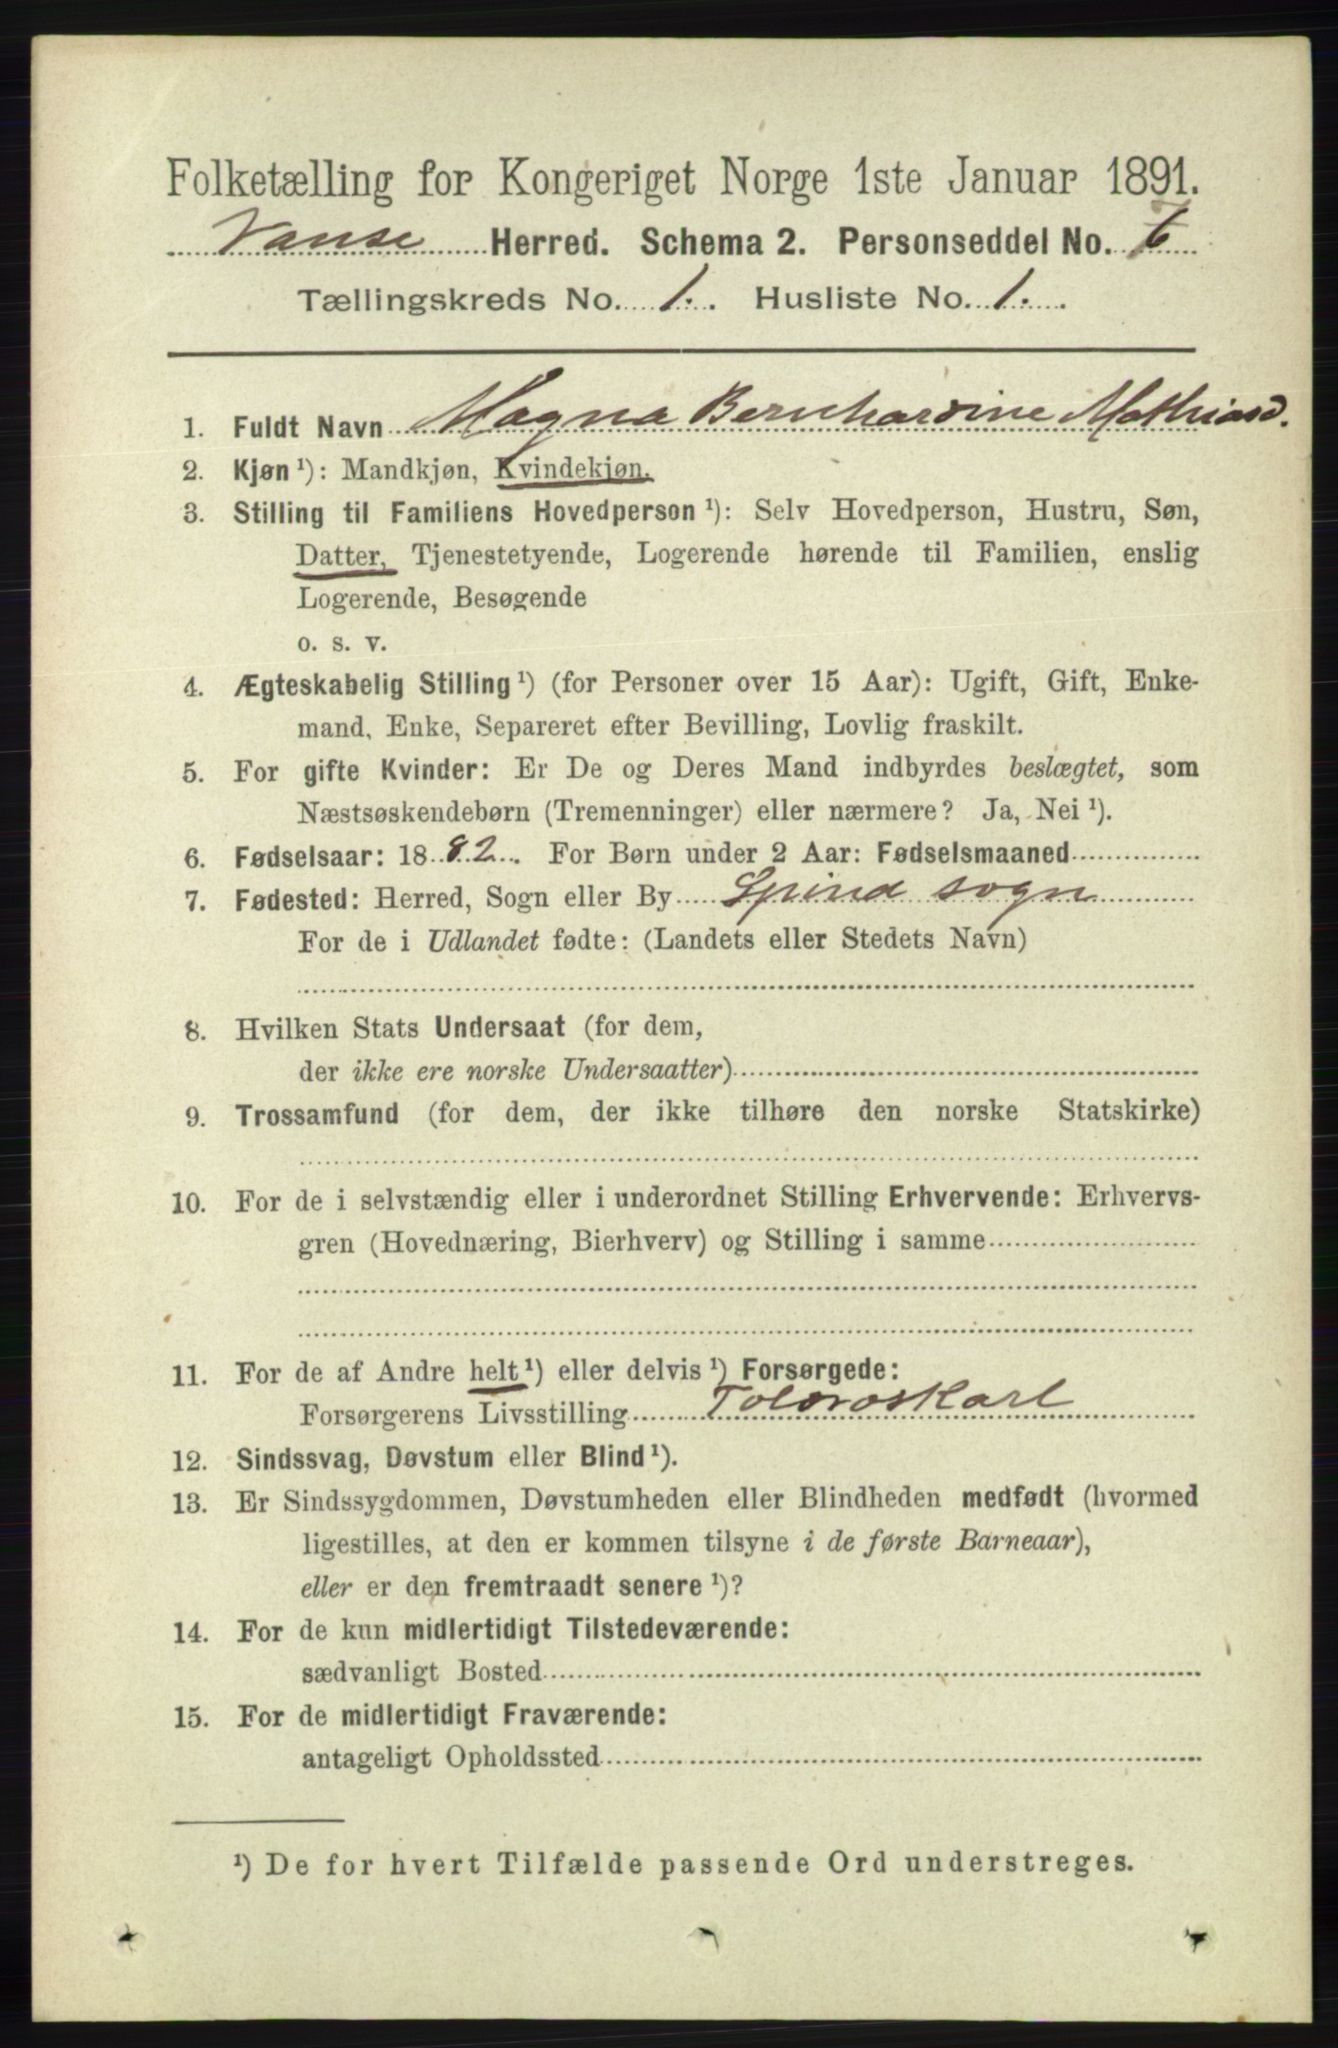 Folketælling for Kongeriget Norge 1ste Januar 1891.
Vanse Herred. Schema 2. Personseddel No. 6
Tællingskreds No. 1. Husliste No. 1.
1. Fuldt Navn Magna Bernhardine Mathiasd.
2. Kjøn ¹): Mandkjøn, Kvindekjøn.
3. Stilling til Familiens Hovedperson ¹): Selv Hovedperson, Hustru, Søn,
Datter, Tjenestetyende, Logerende hørende til Familien, enslig
Logerende, Besøgende
o. s. v.
4. Ægteskabelig Stilling ¹) (for Personer over 15 Aar): Ugift, Gift, Enke-
mand, Enke, Separeret efter Bevilling, Lovlig fraskilt.
5. For gifte Kvinder: Er De og Deres Mand indbyrdes beslægtet, som
Næstsøskendebørn (Tremenninger) eller nærmere? Ja, Nei ¹).
6. Fødselsaar: 1882. For Børn under 2 Aar: Fødselsmaaned
7. Fødested: Herred, Sogn eller By Spind sogn
For de i Udlandet fødte: (Landets eller Stedets Navn)
8. Hvilken Stats Undersaat (for dem,
der ikke ere norske Undersaatter)
9. Trossamfund (for dem, der ikke tilhøre den norske Statskirke)
10. For de i selvstændig eller i underordnet Stilling Erhvervende: Erhvervs-
gren (Hovednæring, Bierhverv) og Stilling i samme
11. For de af Andre helt ¹) eller delvis ¹) Forsørgede:
Forsørgerens Livsstilling Toldroskarl
12. Sindssvag, Døvstum eller Blind ¹).
13. Er Sindssygdommen, Døvstumheden eller Blindheden medfødt (hvormed
ligestilles, at den er kommen tilsyne i de første Barneaar),
eller er den fremtraadt senere ¹)?
14. For de kun midlertidigt Tilstedeværende:
sædvanligt Bosted
15. For de midlertidigt Fraværende:
antageligt Opholdssted
¹) De for hvert Tilfælde passende Ord understreges.